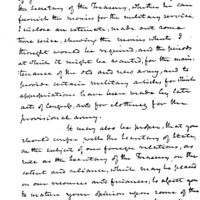 the Secretary of the Treasury, whether he can
furnish the monies for the military service.
I inclose an estimate, made out some
time since, shewing the monies which I
thought would be required, and the periods
at which it might be wanted, for the main-
tenance of the old and new army, and to
provide certain military articles for which
appropriations have been made by late
acts of Congress, and for clothing for the
provisional army.
It may also be proper, that you
should confer with the Secretary of State,
on the subject of our foreign relations, as
well as the Secretary of the Treasury, on the
extent and reliance, which may be placed
on our resources and finances, to assist you
to mature your opinion upon some of the